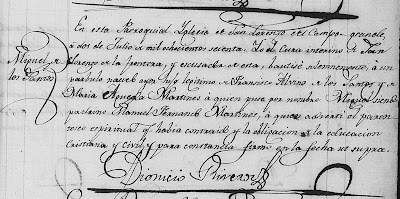 En esta Parroquial Iglesia de San Lorenzo el Campo-grande,
a dos de Julio de mil ochocientos secenta. Yo el Cura interino de San
Miguel de
los Santos
Lorenzo de la frontera, y de esta, bautisé solemnemente, á un
parbulo hijo legitimo de Francisco Alvino de los Santos y de
Maria Martinez á quien puse por nombre Miguel siendo
padrino Manuel Fernando Martinez, á quien adverti el paren
tesco espiritual q. habia contraido y la obligacion á la educacion
Cristiana y civil, y para constancia firmo en la fecha ut supra.
Dionicio